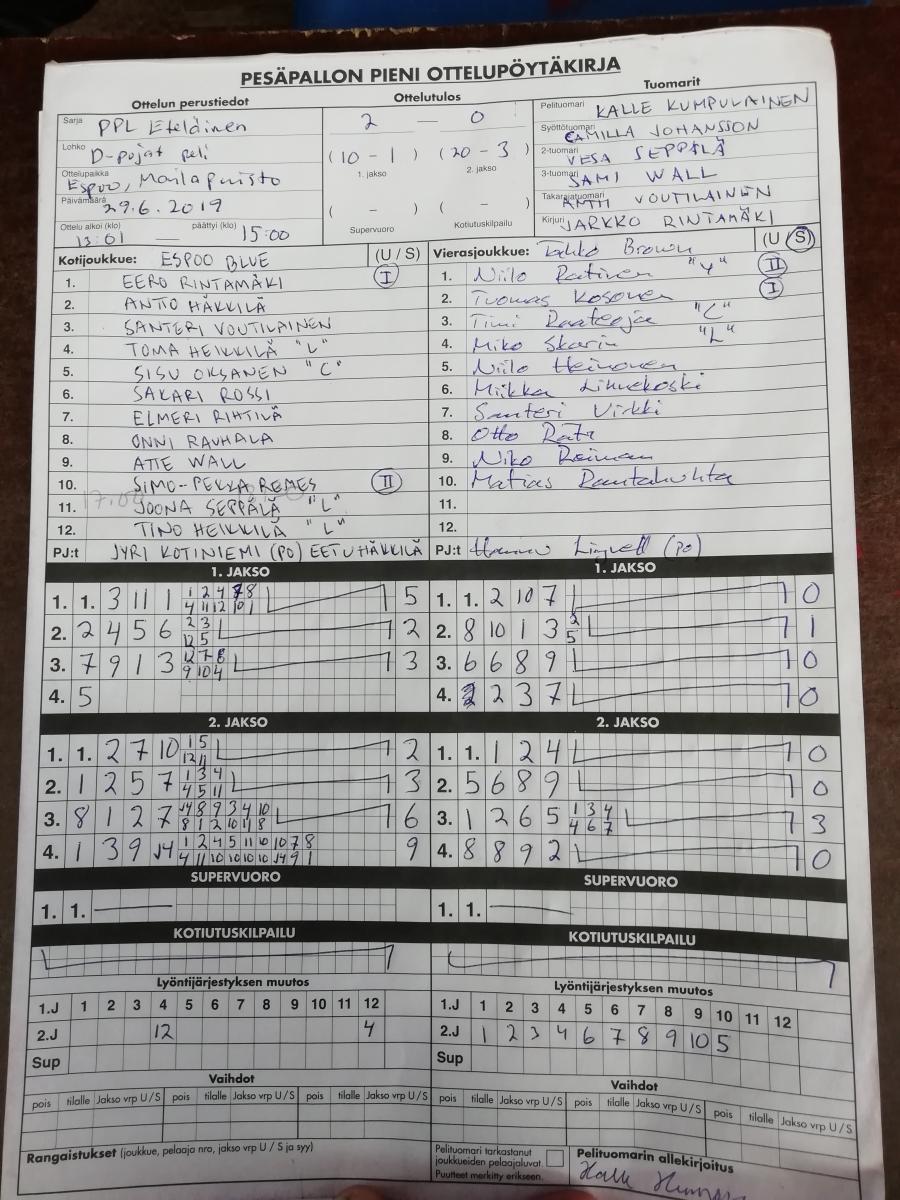 PESÄPALLON PIENI OTTELUPÖYTÄKIRJA
Ottelun perustiedot Ottelutulos Tuomarit
Sarja PPL Eteläinen 2 — 0 Pelituomari KALLE KUMPULAINEN
Lohko D-pojat peli (10 - 1) (20 - 3) Syöttötuomari CAMILLA JOHANSSON
1. jakso 2. jakso 2-tuomari VESA SEPPÄLÄ
Ottelupaikka Espoo, Mailapuisto 3-tuomari SAMI WALL
Päivämäärä 29.6.2019 ( - ) ( - ) Takarajatuomari ANTTI VOUTILAINEN
Ottelu alkoi (klo) 13:01 — päättyi (klo) 15:00 Supervuoro Kotiutuskilpailu Kirjuri JARKKO RINTAMÄKI
Kotijoukkue: ESPOO BLUE (U / S) Vierasjoukkue: Brown (U / S)
1. EERO RINTAMÄKI I 1. Niilo "V" II
2. ANTTO HÄKKILÄ 2. Tuomas Kosonen I
3. SANTERI VOUTILAINEN 3. Timi "C"
4. TOMA HEIKKILÄ "L" 4. Miko Skarin "L"
5. SISU OKSANEN "C" 5. Niilo Heinonen
6. SAKARI ROSSI 6. Miikka
7. ELMERI RIHTILÄ 7. Santeri Virkki
8. ONNI RAUHALA 8. Otto
9. ATTE WALL 9. Niko
10. SIMO-PEKKA REMES II 10. Matias
11. JOONA SEPPÄLÄ "L" 11.
12. TINO HEIKKILÄ "L" 12.
PJ:t JYRI KOTINIEMI (PO) EETU HÄKKILÄ PJ:t (PO)
1. JAKSO 1. JAKSO
1. 1. 3 11 1 5 1. 1. 2 10 7 0
2. 2 4 5 6 2 3 12 5 2 2. 8 10 1 3 2 5 1
3. 7 9 1 3 12 7 8 9 10 4 3 3. 6 6 8 9 0
4. 5 4. 2 2 3 7 0
2. JAKSO 2. JAKSO
1. 1. 2 7 10 1 5 12 11 2 1. 1. 1 2 4 0
2. 1 2 5 7 1 3 4 4 5 11 3 2. 5 6 8 9 0
3. 8 1 2 7 J4 8 9 3 4 10 8 1 2 10 11 8 6 3. 1 2 6 5 1 3 4 4 6 7 3
4. 1 3 9 J4 1 2 4 5 11 10 10 7 8 4 11 10 10 10 10 J4 9 1 9 4. 8 8 9 2 0
SUPERVUORO SUPERVUORO
1. 1. 1. 1.
KOTIUTUSKILPAILU KOTIUTUSKILPAILU
Lyöntijärjestyksen muutos Lyöntijärjestyksen muutos
1.J 1 2 3 4 5 6 7 8 9 10 11 12 1.J 1 2 3 4 5 6 7 8 9 10 11 12
2.J 12 4 2.J 1 2 3 4 6 7 8 9 10 5
Sup Sup
Vaihdot Vaihdot
pois tilalle Jakso vrp U / S pois tilalle Jakso vrp U / S pois tilalle Jakso vrp U / S pois tilalle Jakso vrp U / S pois tilalle Jakso vrp U / S pois tilalle Jakso vrp U / S
Rangaistukset (joukkue, pelaaja nro, jakso vrp U / S ja syy) Pelituomari tarkastanut Pelituomarin allekirjoitus
joukkueiden pelaajaluvat.
Puutteet merkitty erikseen. Kalle